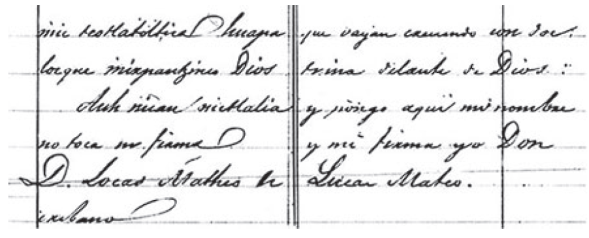 mic teotlàtoltica huapa
locque inixpantzinco Dios
Auh nican nictlalia
no toca nofirma
D. Lucas Matheo Es
cribano
que vayan creciendo con doc.
trina delante de Dios :
y póngo aqui mi nombre
y mi firma yo Don
Lucas Mateo.